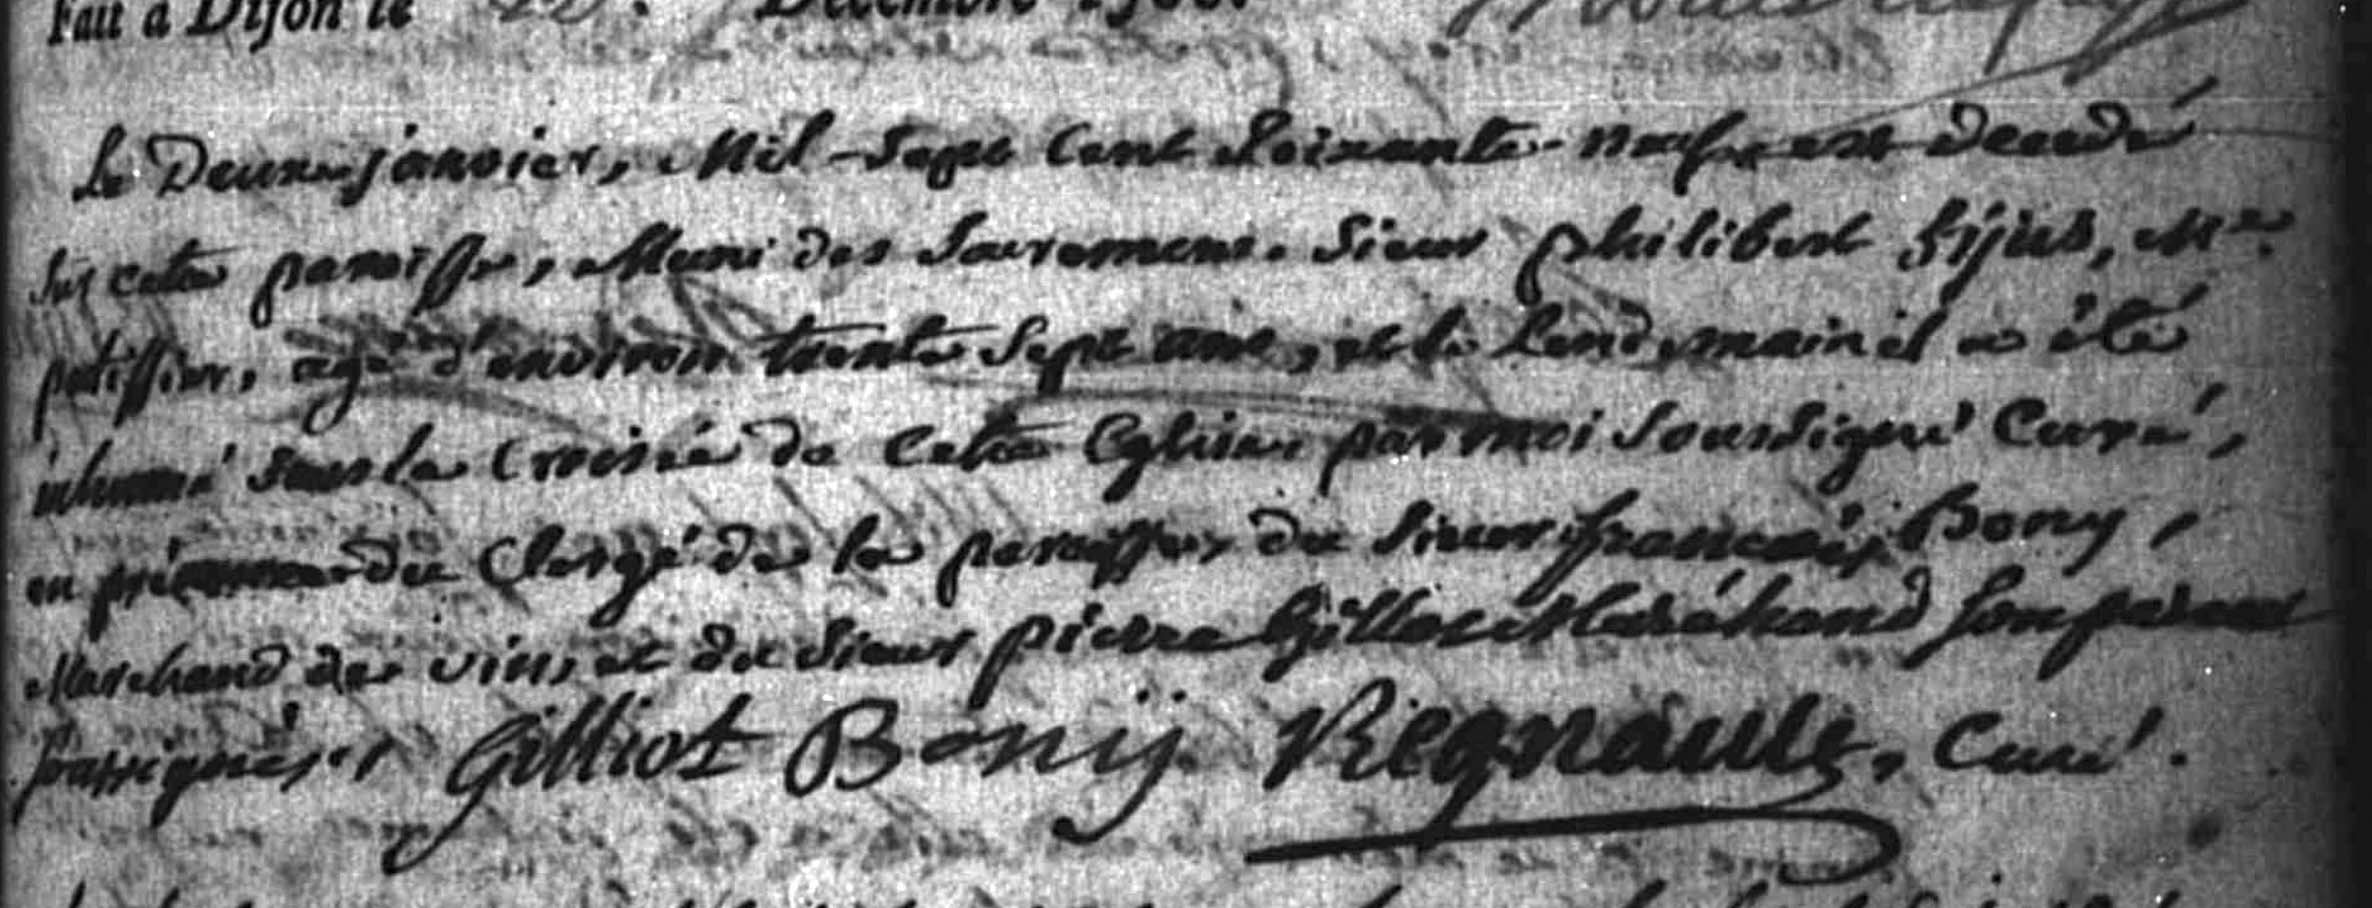 Fait a Dijon le Decembre
Le Deux janvier, Mil Sept Cent Soixante neuf est decedé
sur cette paroisse, Muni des Sacremens. Sieur philibert M.re
patissier, agé d'environ trente Sept ans, et le lendemain il a été
inhumé sous la Croisée de cette Eglise par moi soussigné Curé,
en présence du Clergé de la paroisse, du Sieur françois Bony,
Marchand de vin, et du Sieur pierre Marchand
soussignés. Gilliot Bonij Regnault, Curé.